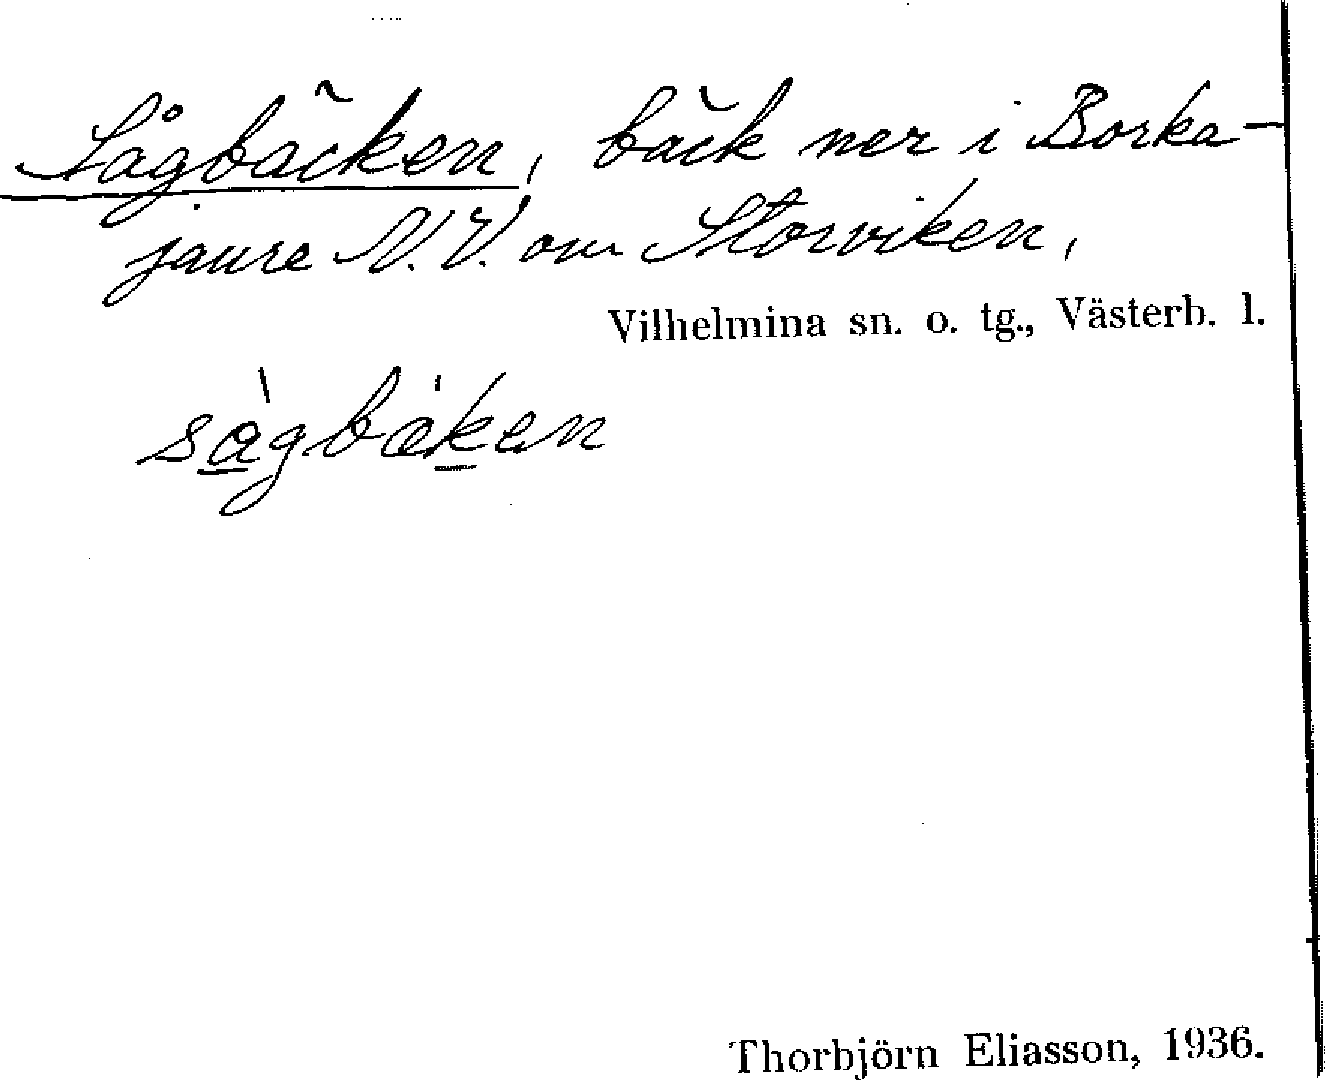 Sågbäcken, bäck ner i Borka-
jaure N.V. om Storviken,
Vilhelmina sn. o. tg., Västerb. l.
sàgbäken
Thorbjörn Eliasson, 1936.